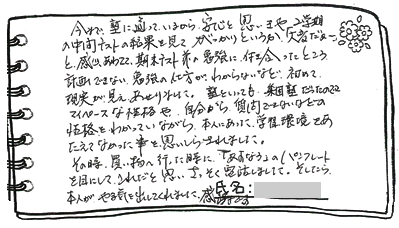 今まで、塾に通っているから、安心と思いきや、2学期
の中間テストの結果を見てがっかりというか、欠者だぁー
と、感じあわてて、期末テスト前の勉強に、付き合ったところ
計画できない、勉強の仕方がわからないなど、初めて、
現実が見え、あせりました。塾といっても、集団塾だったので
マイペースな性格や、自分から、質問できないなどの
性格をわかっていながら、本人にあった、学習環境をあ
たえてなかった事を思いしらされました。
その時、買い物へ行った時に、「あすなろ」のパンフレート
を目にして、これだと思い、さっそく電話しました。そしたら、
本人がやる気を出してくれました。感謝です
氏名: